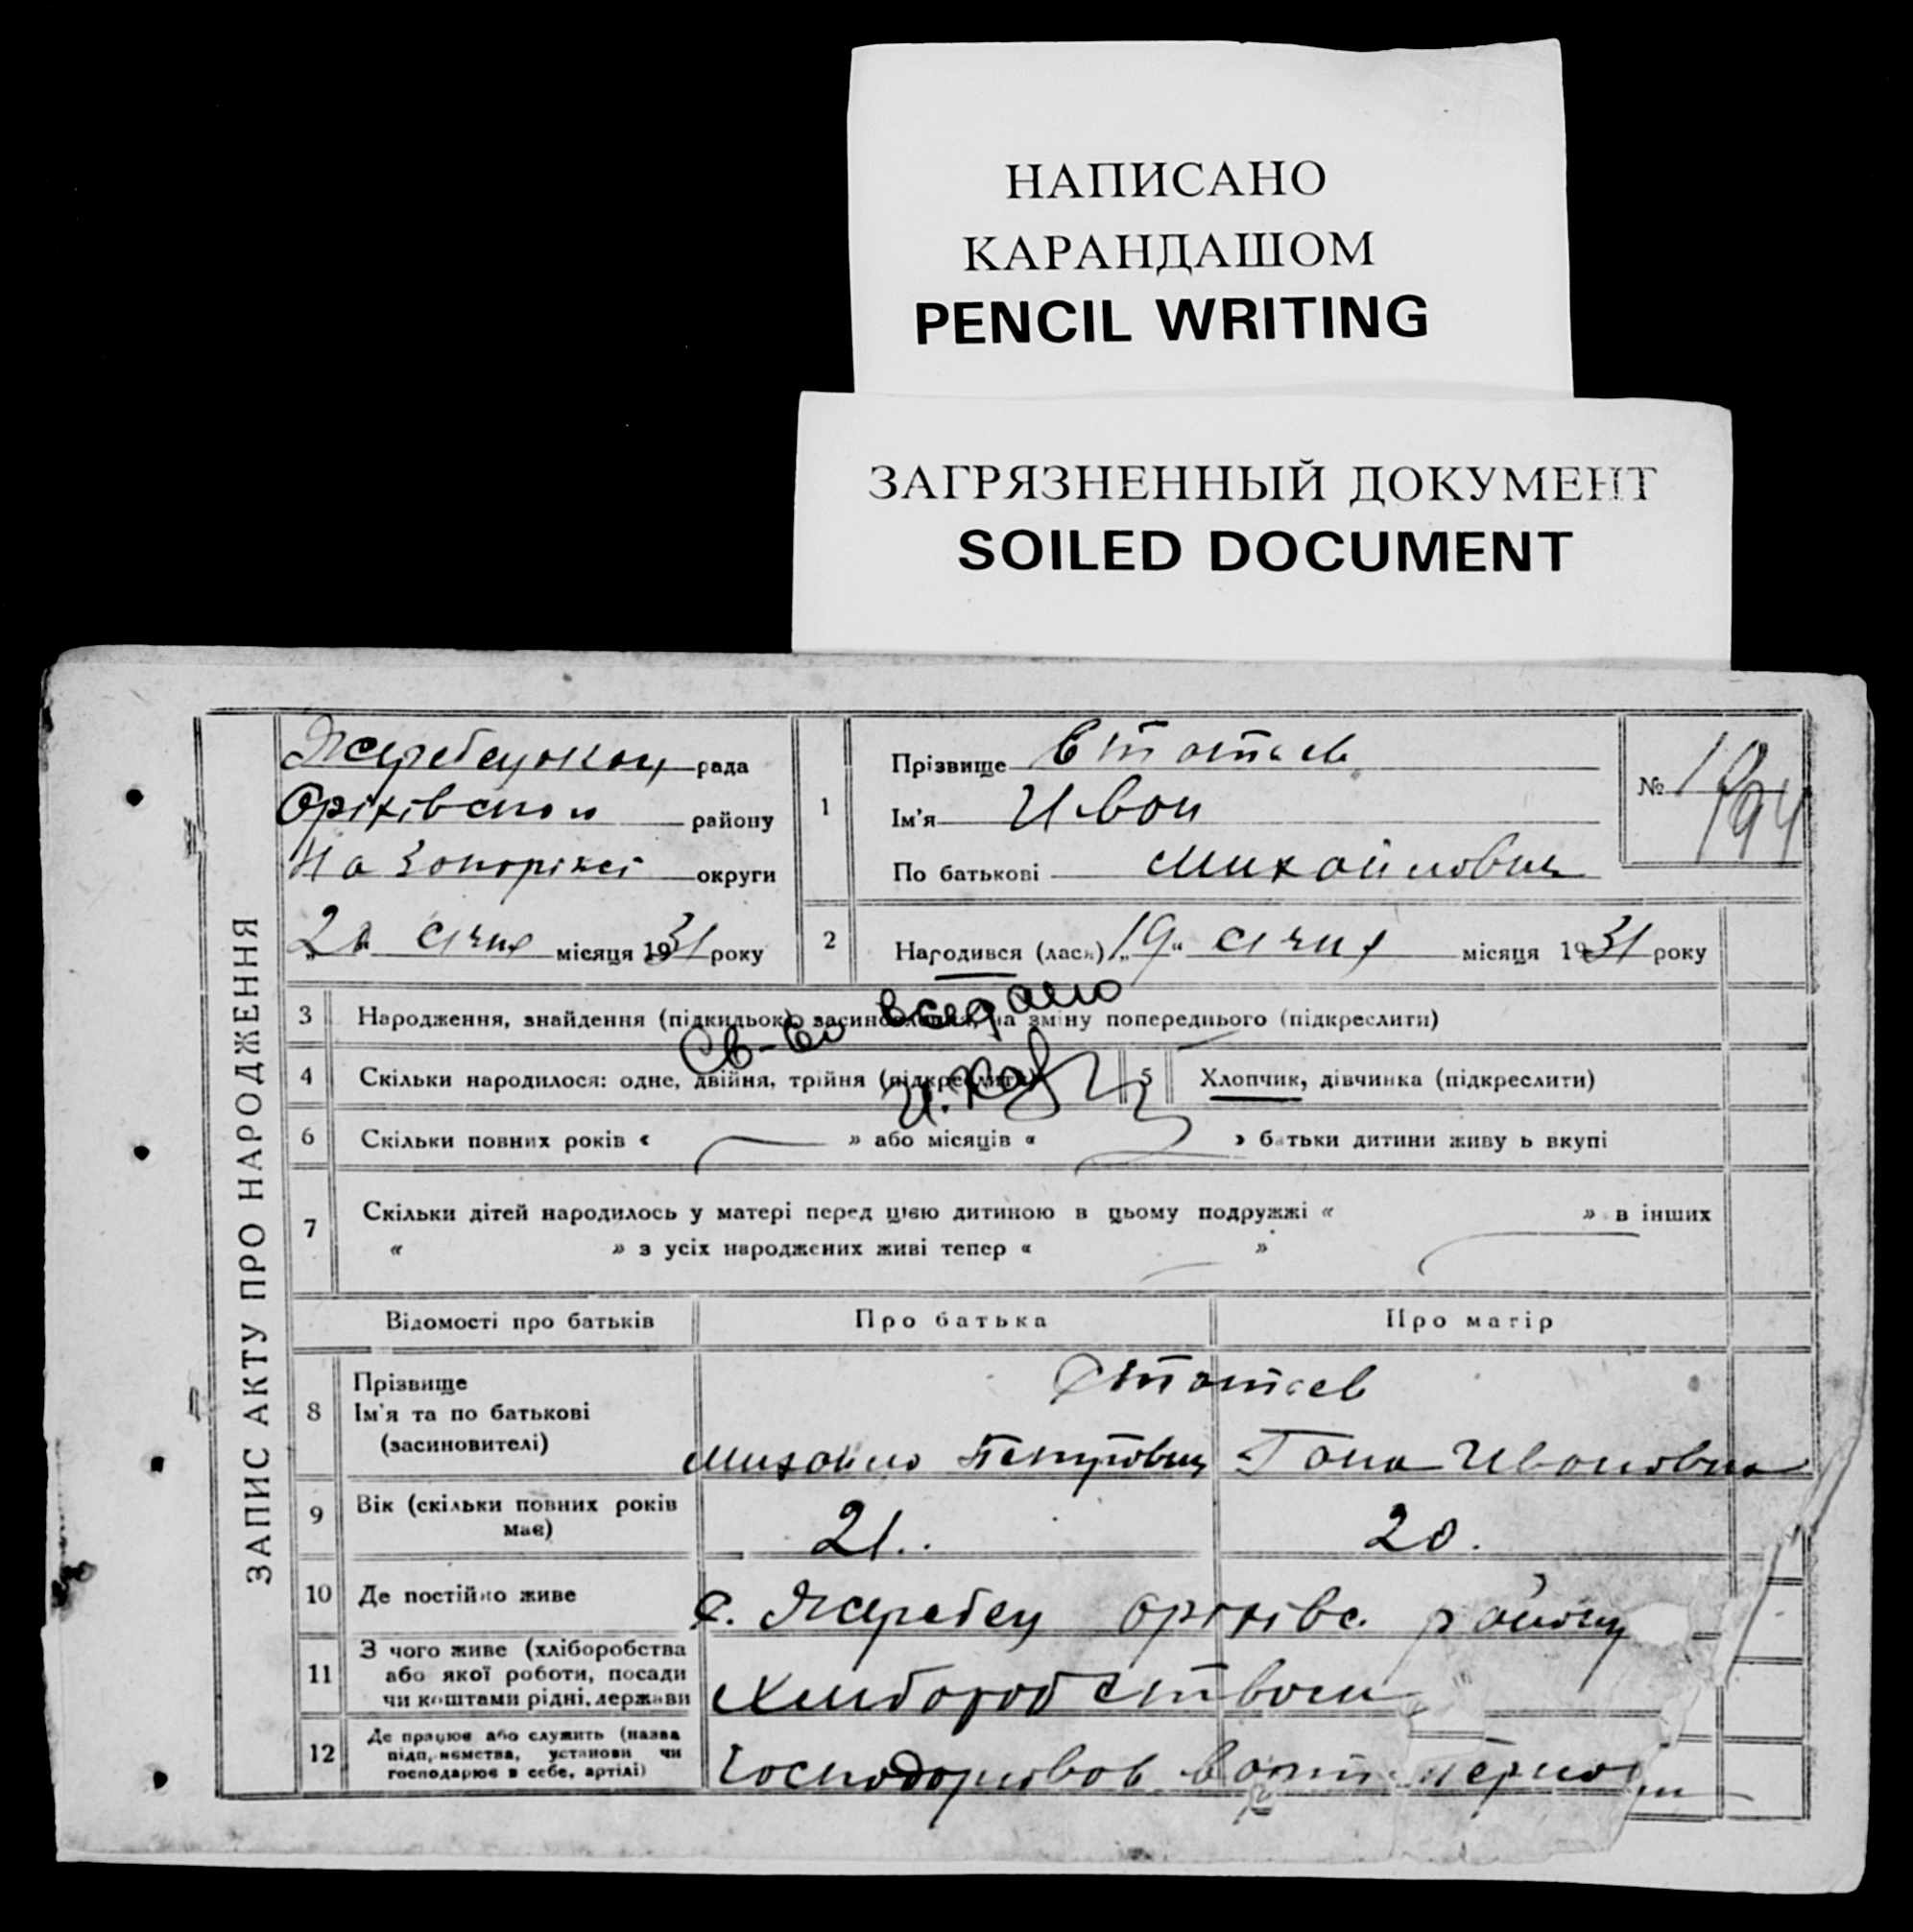 НАПИСАНО
КАРАНДАШОМ
PENCIL WRITING
ЗАГРЯЗНЕННЫЙ ДОКУМЕНТ
SOILED DOCUMENT
ЗАПИС АКТУ ПРО НАРОДЖЕННЯ
рада
Оріхівского району
На Запоріжжі округи
січня місяця 1931 року
1 Прізвище
Ім'я Иван
По батькові Михайлович
№
2 Народився (лась) „19“ січня місяця 1931 року
Св-во выдано
3 Народження, знайдення (підкидьок) засиновлення, на зміну попереднього (підкреслити)
4 Скільки народилося: одне, двійня, трійня (підкреслити)
5 Хлопчик, дівчинка (підкреслити)
6 Скільки повних років « » або місяців « » батьки дитини живуть вкупі
7 Скільки дітей народилось у матері перед цією дитиною в цьому подружжі « » в інших
« » з усіх народжених живі тепер « »
Відомості про батьків Про батька Про матір
8 Прізвище
Ім'я та по батькові
(засиновителі)
Михайло Гана Ивановна
9 Вік (скільки повних років має) 21. 20.
10 Де постійно живе с. Жеребец Оріхівс. району
11 З чого живе (хліборобства
або якої роботи, посади
чи коштами рідні, держави
Хлиборобством
12 Де працює або служить (назва
підприємства, установи чи
господарює в себе, артілі)